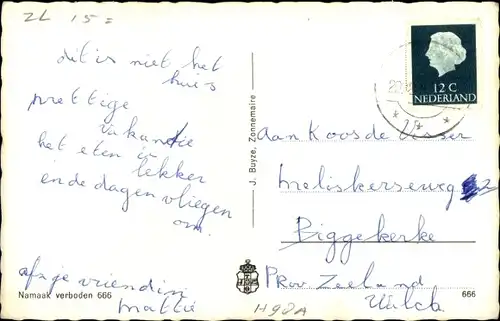 ZL 15=
dit is niet het
huis
prettige
vakantie
het eten is
lekker
en de dagen vliegen
om.
afz je vriendin
Mattie
Namaak verboden 666
J. Buyze, Zonnemaire
12 C
NEDERLAND
Aan Koos de Visser
Meliskerseweg 2
Biggekerke
Prov Zeeland
Walch
666
H90A